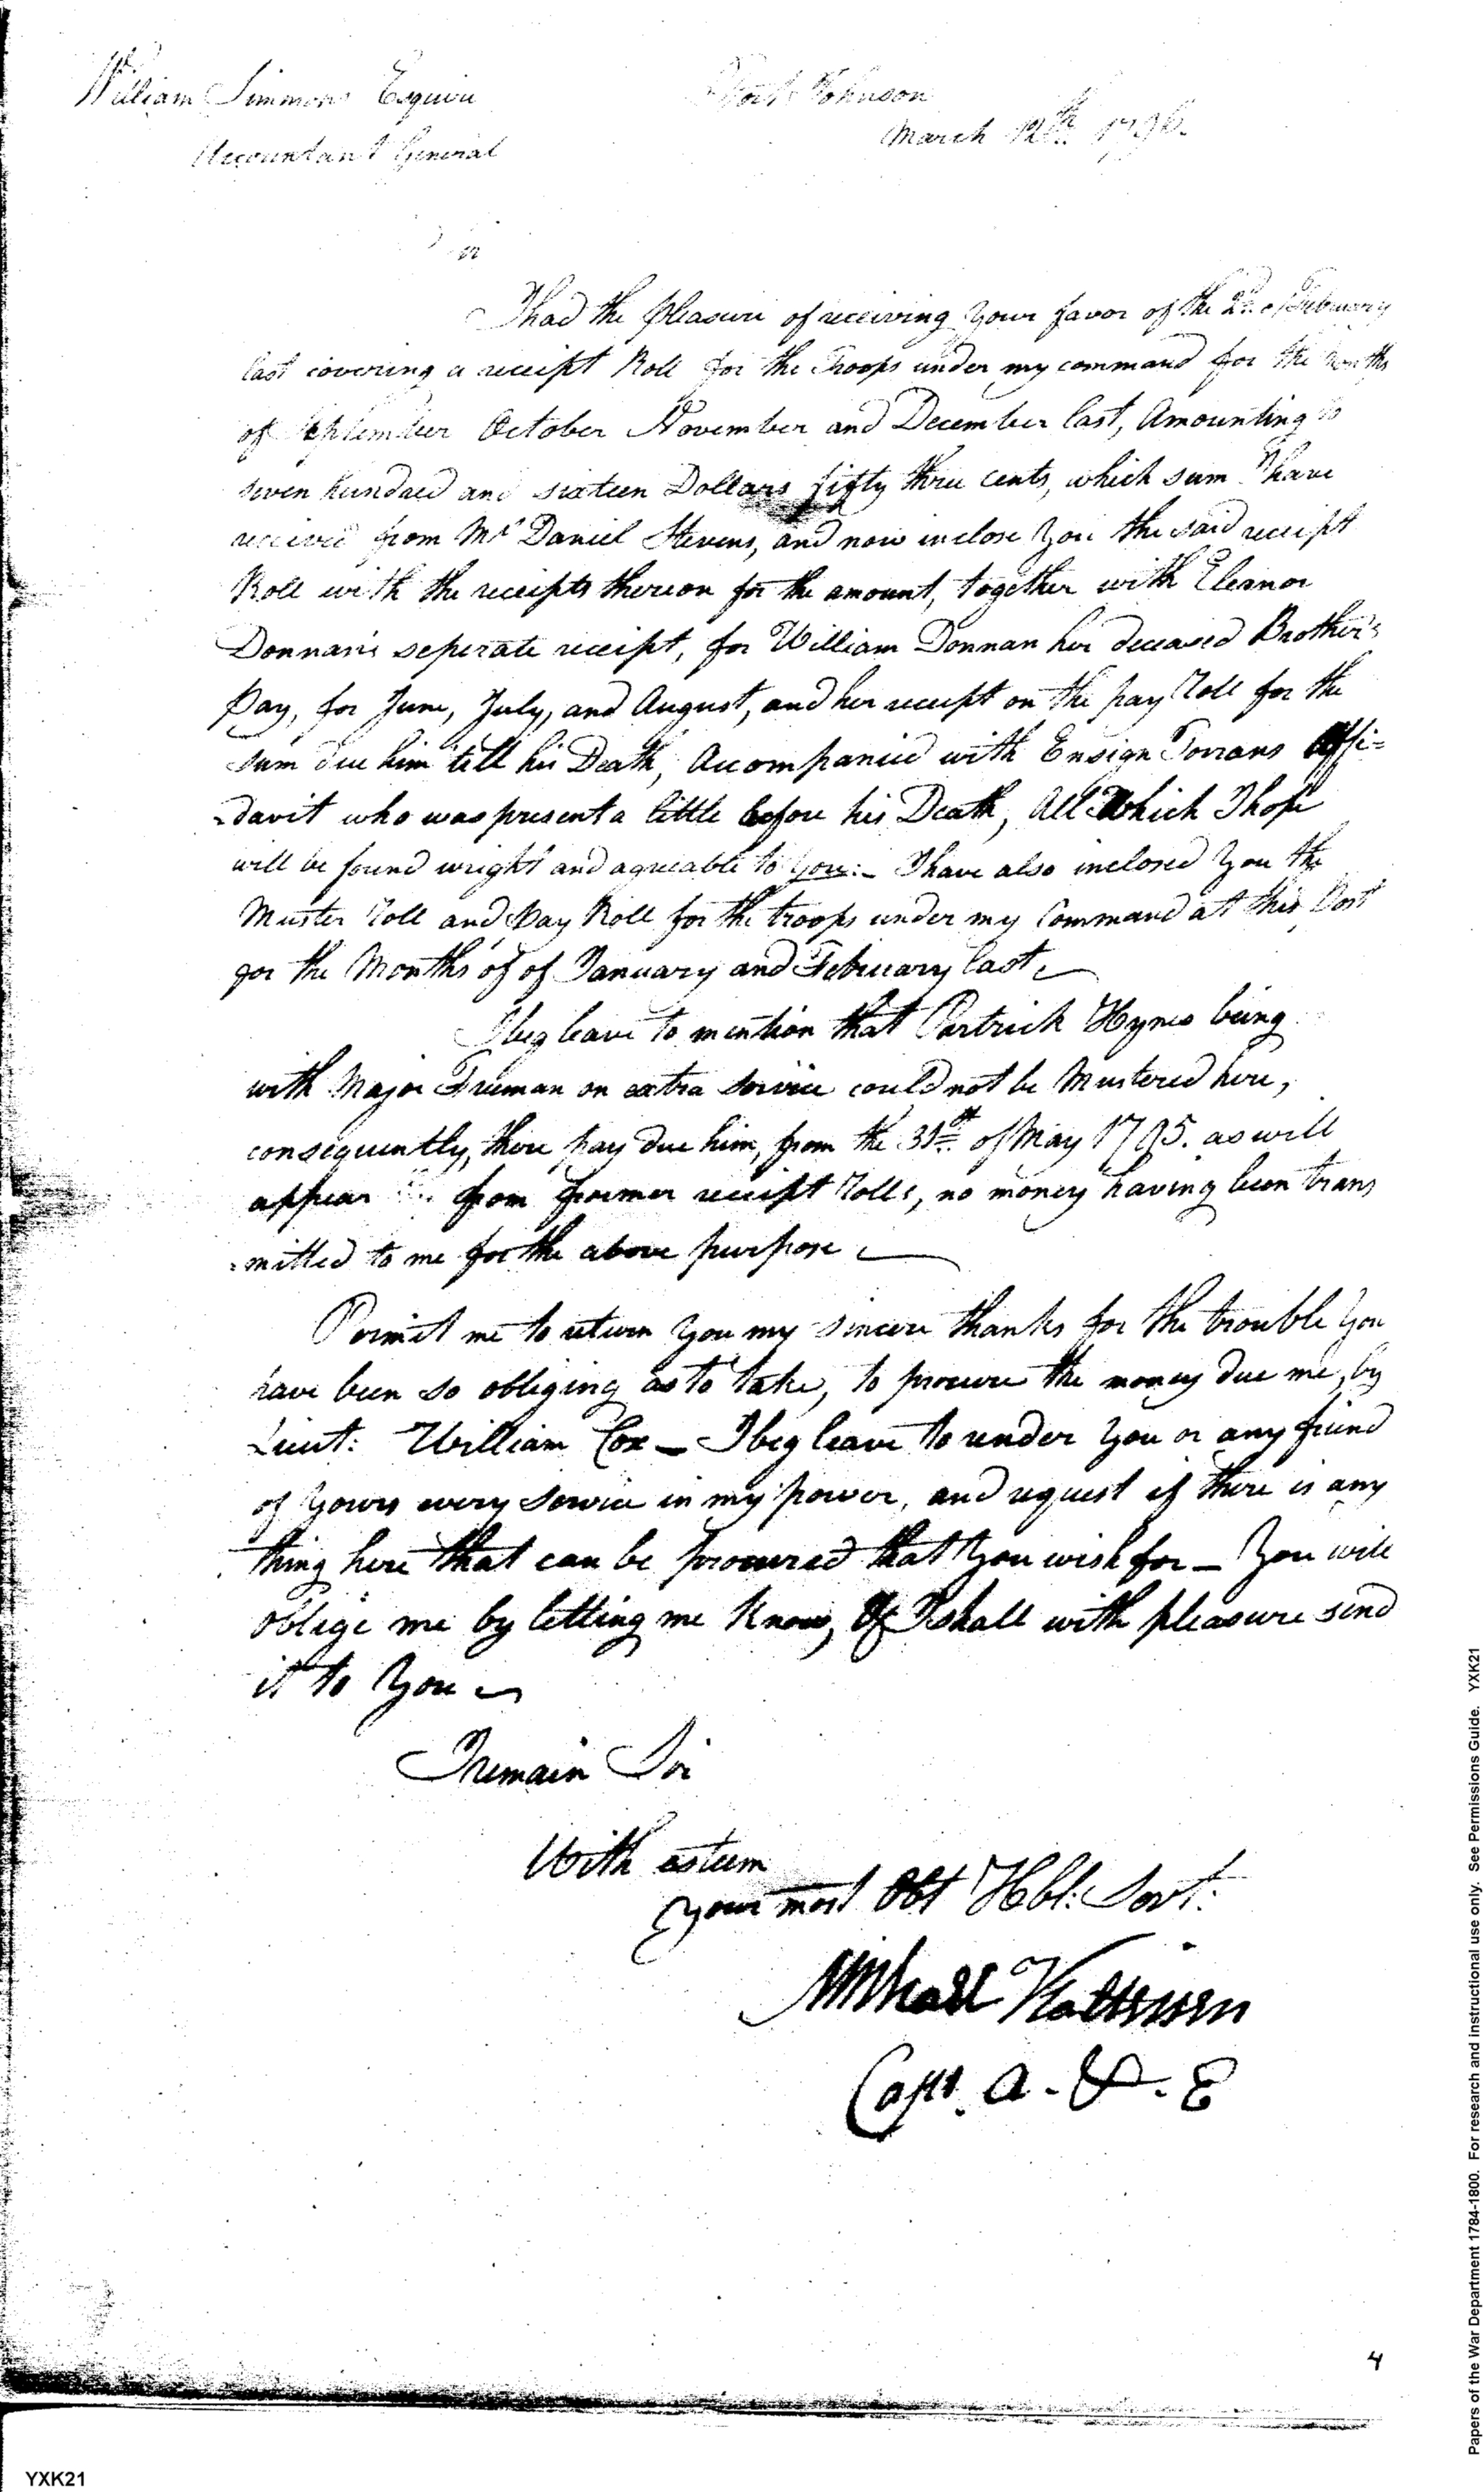 William Simmons Esquire
Accountant General
Fort Johnson
March 12th 1796.
Sir
I had the pleasure of receiving your favor of the 2nd February
last covering a receipt Roll for the Troops under my command for the months
of September October November and December last, Amounting to
seven hundred and sixteen Dollars fifty three cents, which sum I have
received from Mr Daniel Stevens, and now inclose you the said receipt
Roll with the receipts thereon for the amount, together with Eleanor
Donnan's seperate receipt, for William Donnan her deceased Brother's
Pay, for June, July, and August, and her receipt on the pay Roll for the
sum due him till his Death, Acompanied with Ensign Torrans Affi=
=davit who was present a little before his Death, All which I hope
will be found wright and agreeable to you:– I have also inclosed You the
Muster Roll and Pay Roll for the troops under my Command at this Post
for the Months of of January and February last.
I beg leave to mention that Partrick Hynes being
with Major Freeman on extra service could not be Mustered here,
consequently, there pay due him, from the 31st of May 1795. as will
appear from former receipt Rolls, no money having been trans
=mitted to me for the above purpose
Permit me to return you my sincere thanks for the trouble you
have been so obliging as to take, to procure the money due me, by
Lieut: William Cox – I beg leave to render you or any friend
of yours every service in my power, and request if there is any
thing here that can be procured that you wish for – You will
oblige me by letting me know, & I shall with pleasure send
it to you
I remain Sir
With esteem
Your most Obt Hbl: Servt:
Michael Kalteisen
Capt. A. & E
4
YXK21
Papers of the War Department 1784-1800. For research and instructional use only. See Permissions Guide. YXK21